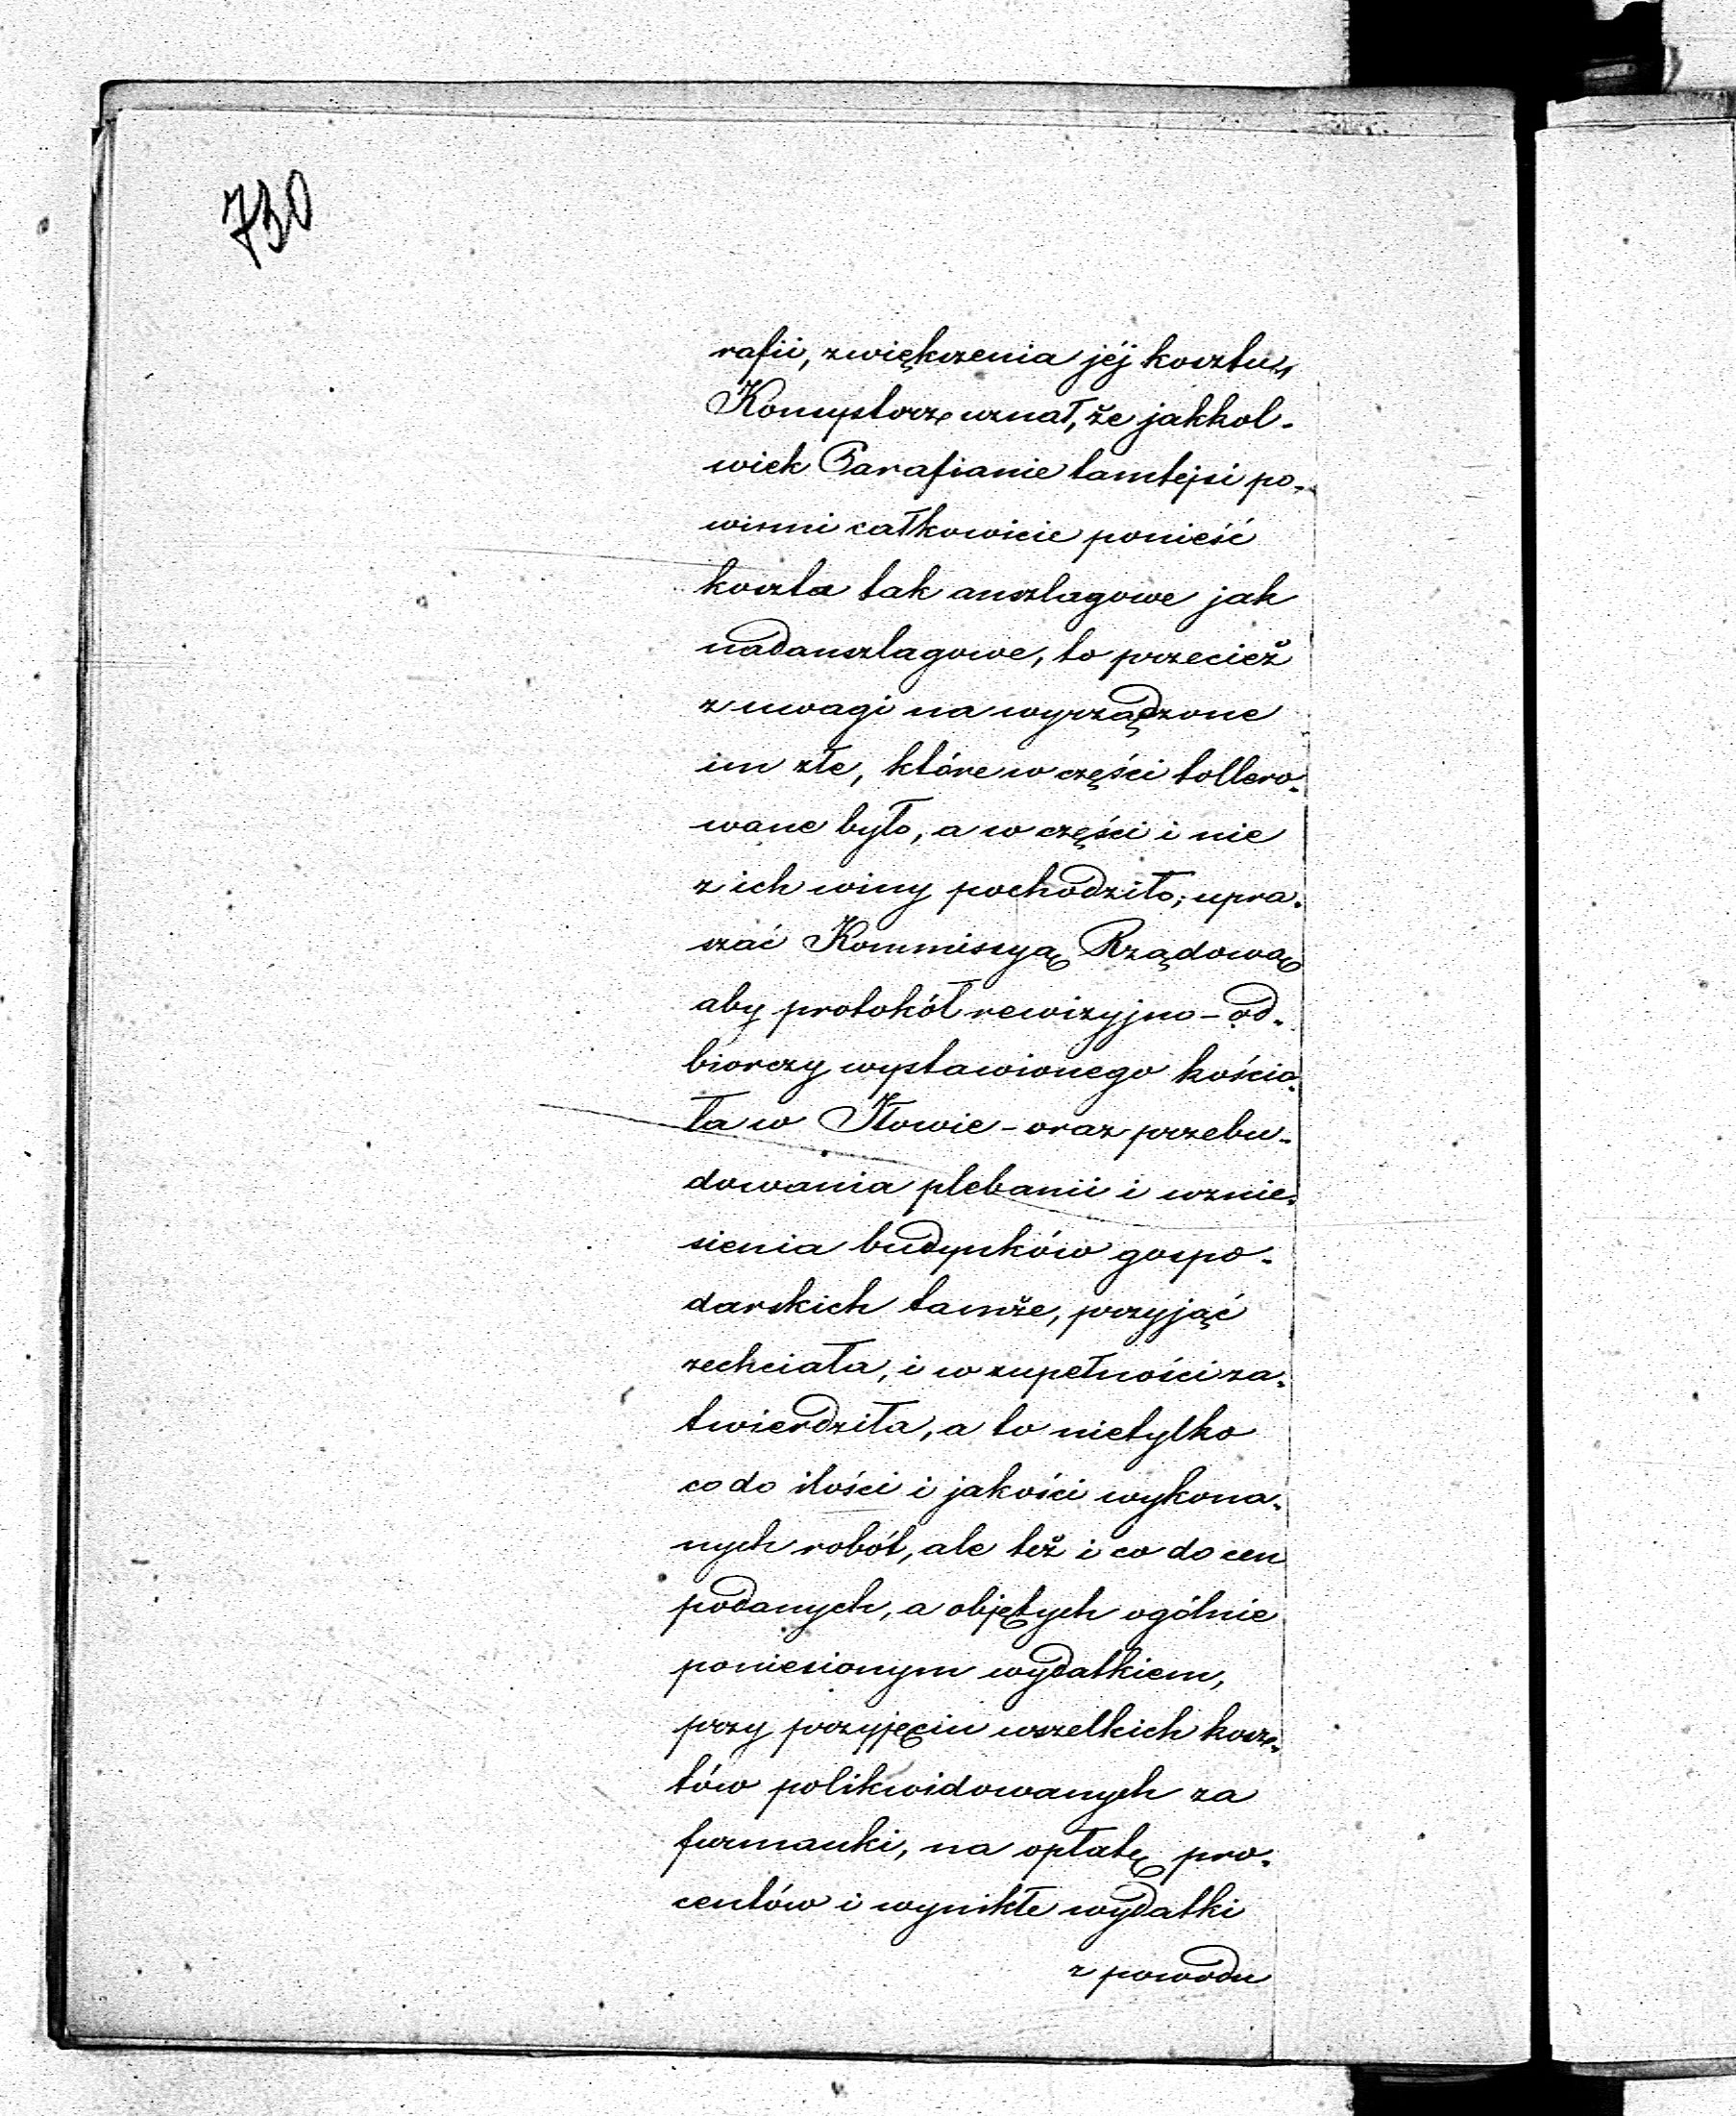 730
rafii, zwiększenia jéj kosztu,
Konsystorz uznał, że jakkol-
wiek Parafianie tamtejsi po-
winni całkowicie ponieść
koszta tak anszlagowe jak
nadanszlagowe, to przecież
z uwagi na wyrządzone
im złe, które w części tollero-
wane było, a w części i nie
z ich winy pochodziło; upra-
szać Kommissyą Rządową
aby protokół rewizyjno-od-
biorczy wystawionego kościo-
ła w Iłowie - oraz przebu-
dowania plebanii i wznie-
sienia budynków gospo-
darskich tamże, przyjąć
zechciała, i w zupełności za-
twierdziła, a to nietylko
co do ilości i jakości wykona-
nych robót, ale też i co do cen
podanych, a objętych ogólnie
poniesionym wydatkiem,
przy przyjęciu wszelkich kosz-
tów polikwidowanych za
furmanki, na opłatę pro-
centów i wynikłe wydatki
z powodu